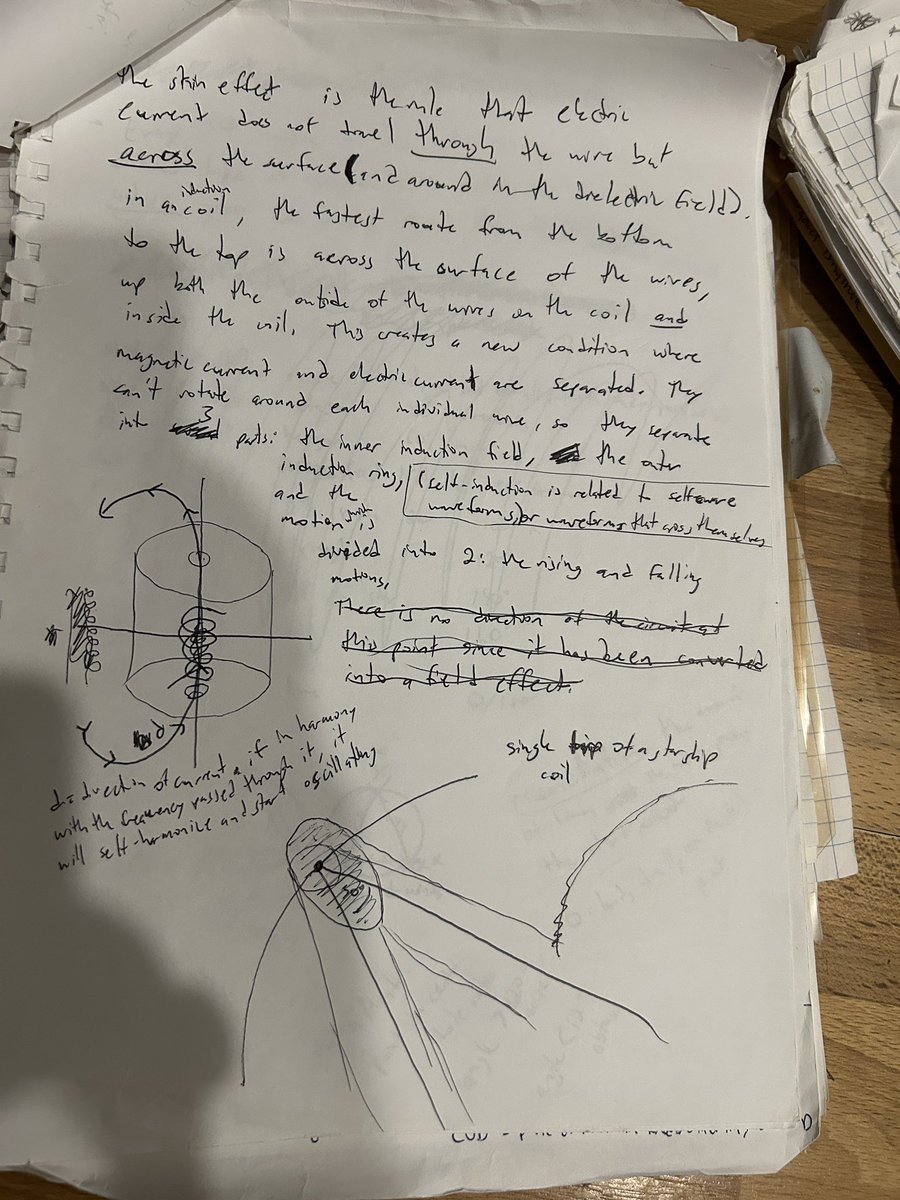 The skin effect is the rule that electric
current does not travel through the wire but
across the surface (and around in the dielectric field).
in an induction coil, the fastest route from the bottom
to the top is across the surface of the wires,
up both the outside of the wires on the coil and
inside the coil. This creates a new condition where
magnetic current and electric current are separated. They
can't rotate around each individual wire, so they separate
into 3 parts: the inner induction field, the outer
induction ring, (self-induction is related to
and the waveforms, or waveforms that cross themselves
motion which is
divided into 2: the rising and falling
motions,
There is no direction of the circuit at
this point since it has been converted
into a field effect.
d = direction of current if in harmony
with the frequency passed through it, it
will self-harmonize and start oscillating
single of a starship
coil